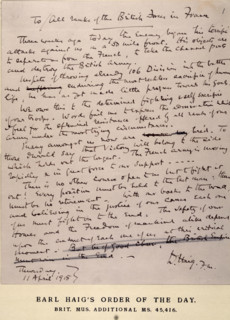 To all ranks of the British Forces in France
Three weeks ago today the Enemy began his terrific
attacks against us on a 50 mile front. His objects are
to separate us from the French, to take the Channel ports
and destroy the British Army.
Inspite of throwing already 106 Divisions into the battle
and enduring the most reckless sacrifice of human
life, he has as yet made little progress towards his goals
We owe this to the determined fighting & self sacrifice
of our troops. Words fail me to express the admiration which
I feel for the splendid resistance offered by all ranks of our
Army under the most trying circumstances.
Many amongst us now are tired. To
those I would say that Victory will belong to the side
which holds out the longest. The French Army is moving
rapidly & in great force to our support.
There is no other course open to us but to fight it
out! Every position must be held to the last man: there
must be no retirement. With our backs to the wall
and believing in the justice of our cause each one
of us must fight on to the end. The safety of our
Homes and the Freedom of mankind alike depend
upon the conduct of each one of us at this critical
moment.
D. Haig. F.M.
Thursday
11 April 1918
EARL HAIG'S ORDER OF THE DAY.
BRIT. MUS. ADDITIONAL MS. 45,416.